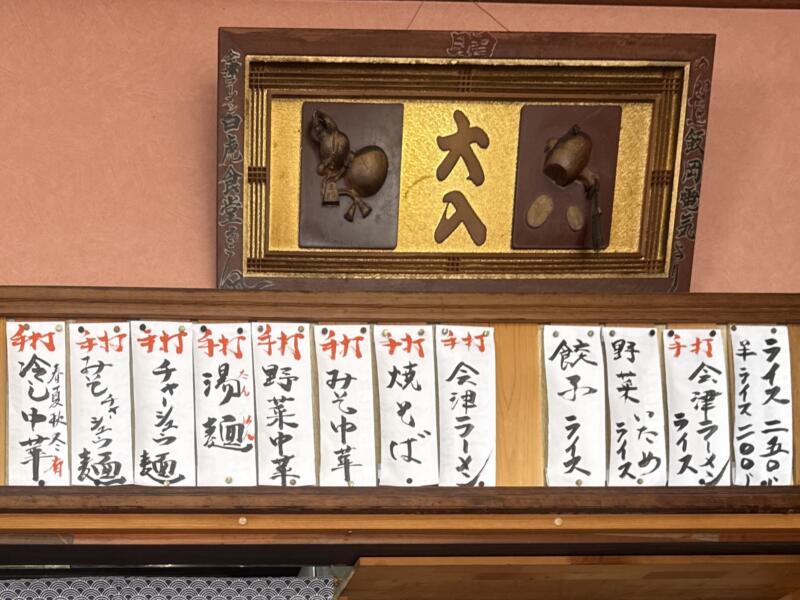 贈
大入
白虎食堂
ライス 二五〇
半ライス 二〇〇
手打
会津ラーメン
ライス
野菜いため
ライス
餃子ライス
手打
会津ラーメン
手打
焼そば
手打
みそ中華
手打
野菜中華
手打
湯麺
たんめん
手打
チャーシュウ麺
手打
みそチャーシュウ麺
手打
冷し中華
春夏秋冬有